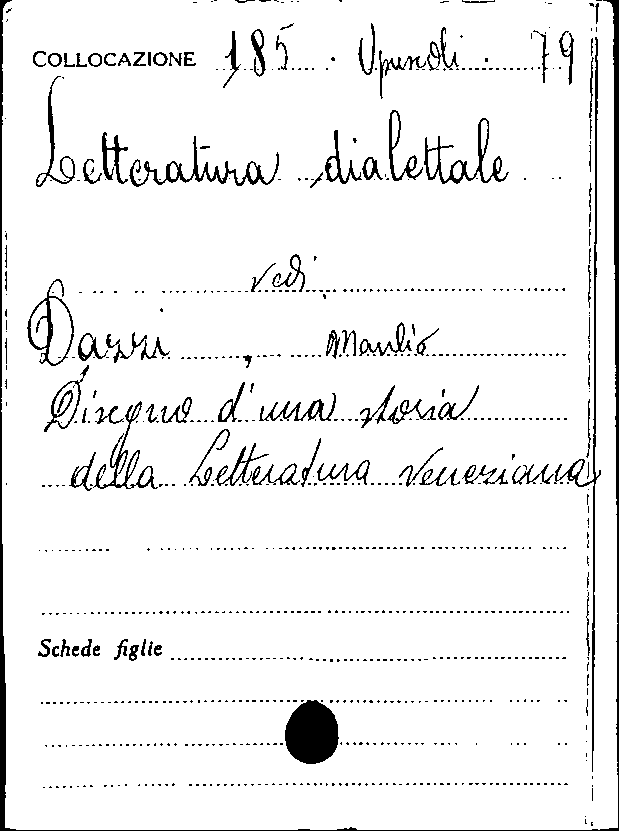 COLLOCAZIONE 185. Opuscoli. 79
Letteratura dialettale
vedi
Dazzi, Manlio
Disegno d'una storia
della Letteratura Veneziana
Schede figlie